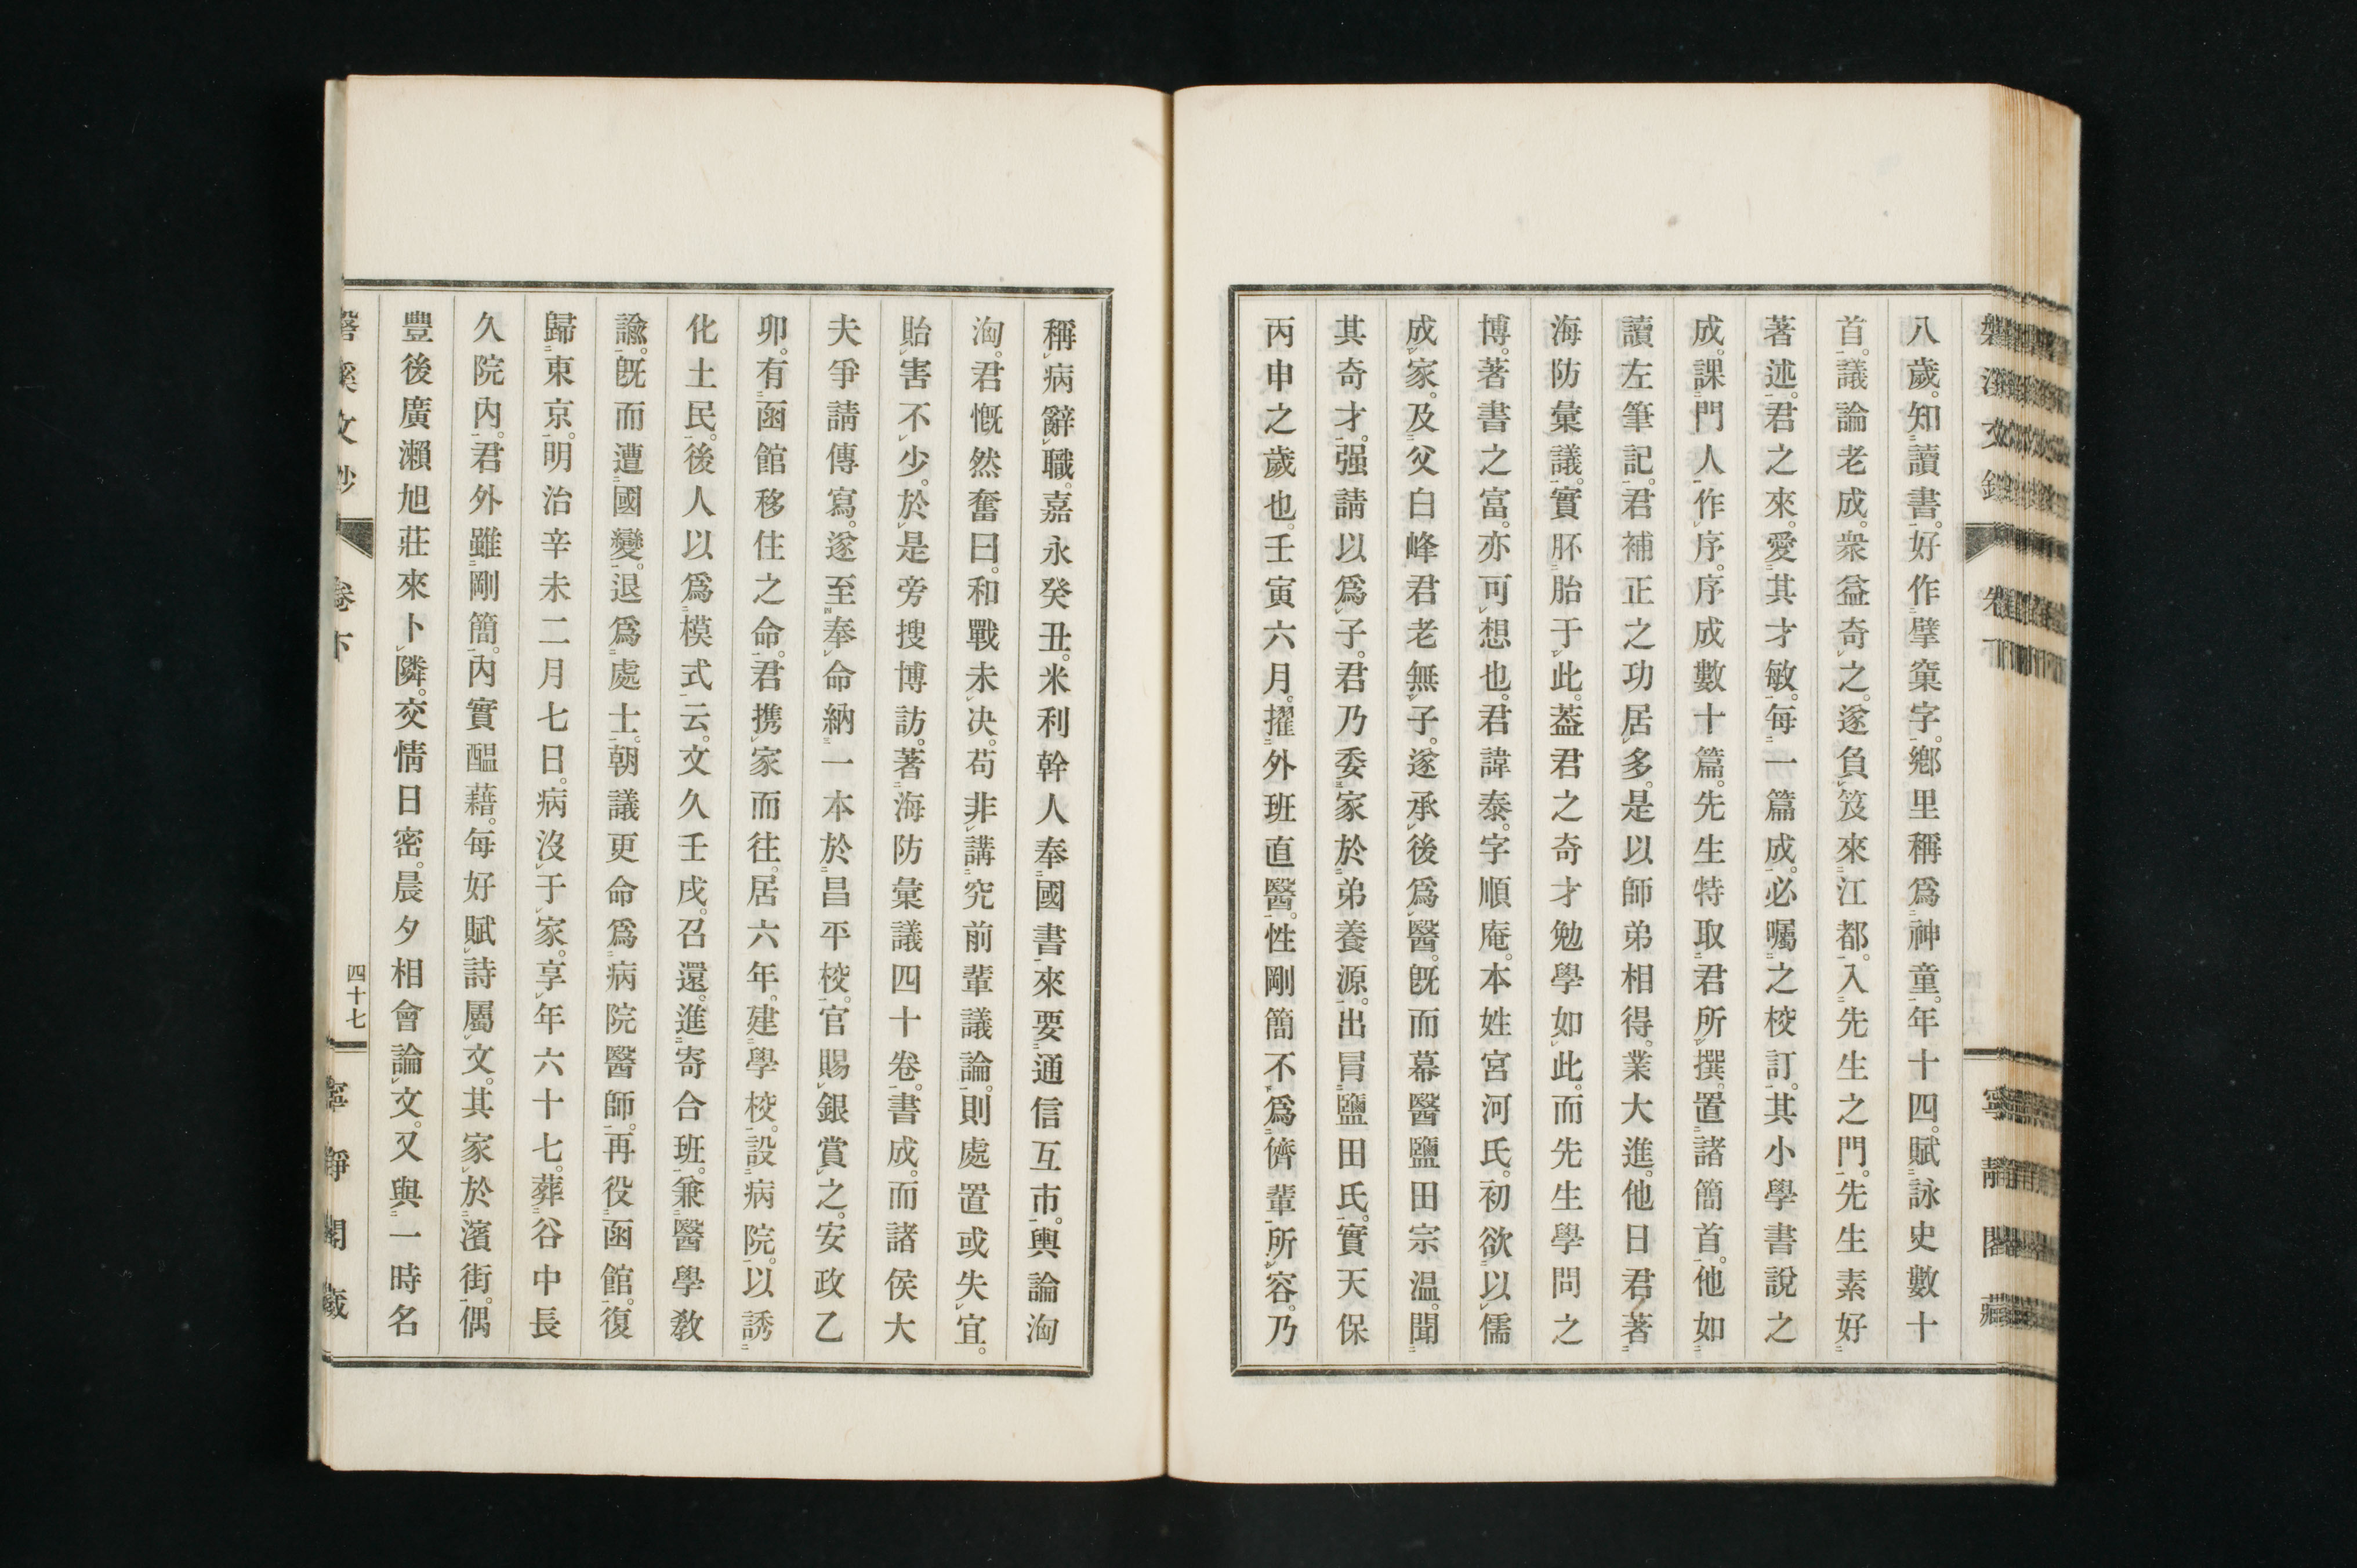 八歲。知讀書。好作擘窠字。鄉里稱爲神童。年十四。賦詠史數十
首。議論老成。衆益奇之。遂負笈來江都。入先生之門。先生素好
著述。君之來。愛其才敏。每一篇成。必囑之校訂。其小學書說之
成。課門人作序。序成數十篇。先生特取君所撰。置諸簡首。他如
讀左筆記。君補正之功居多。是以師弟相得。業大進。他日君著
海防彙議。實胚胎于此。蓋君之奇才勉學如此。而先生學問之
博。著書之富。亦可想也。君諱泰。字順庵。本姓宮河氏。初欲以儒
成家。及父白峰君老無子。遂承後爲醫。旣而幕醫鹽田宗温。聞
其奇才。强請以爲子。君乃委家於弟養源。出冒鹽田氏。實天保
丙申之歲也。壬寅六月。擢外班直醫。性剛簡不爲儕輩所容。乃
稱病辭職。嘉永癸丑。米利幹人奉國書來要通信互市。輿論洶
洶。君慨然奮曰。和戰未决。苟非講究前輩議論。則處置或失宜。
貽害不少。於是旁搜博訪。著海防彙議四十卷。書成。而諸侯大
夫爭請傳寫。遂至奉命納一本於昌平校。官賜銀賞之。安政乙
卯。有函館移住之命。君携家而往。居六年。建學校。設病院。以誘
化土民。後人以爲模式云。文久壬戌。召還。進寄合班。兼醫學敎
諭。旣而遭國變。退爲處士。朝議更命爲病院醫師。再役函館。復
歸東京。明治辛未二月七日。病沒于家。享年六十七。葬谷中長
久院內。君外雖剛簡。內實醞藉。每好賦詩屬文。其家於濱街。偶
豐後廣瀨旭莊來卜隣。交情日密。晨夕相會論文。又與一時名
磐溪文鈔
卷下
四十七
寧靜閣藏